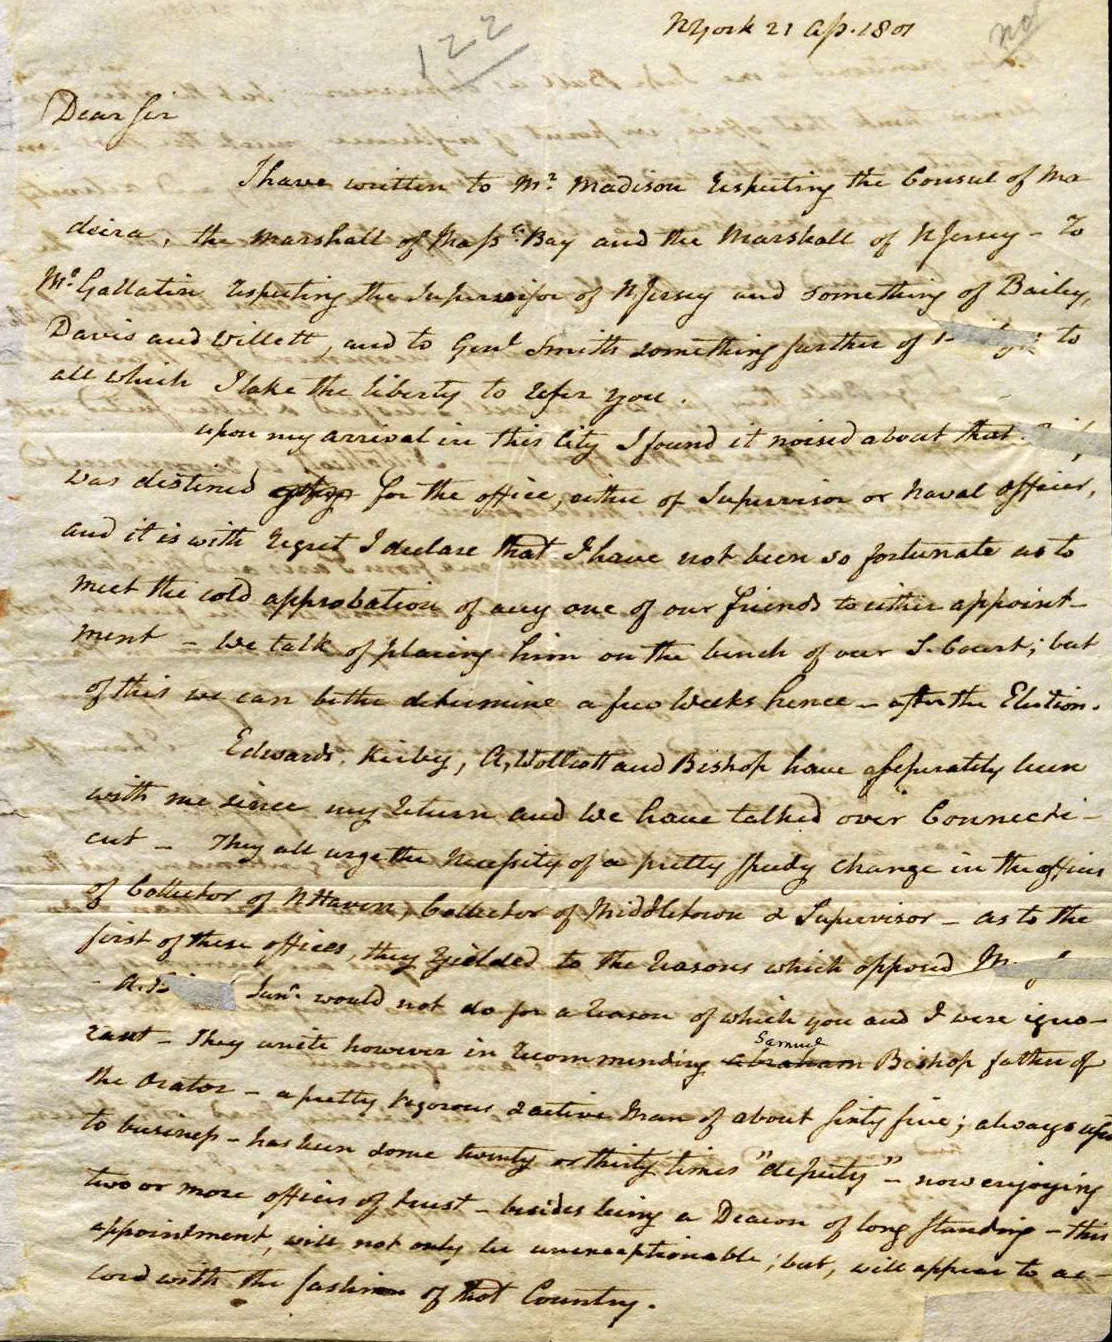 NYork 21 Ap. 1801
122
no
Dear Sir
I have written to Mr. Madison respecting the Consul of Ma
deira, the marshall of Massa. Bay and the Marshall of NJersey - To
Mr. Gallatin respecting the Supervisor of NJersey and something of Bailey,
Davis and Willett, and to Genl Smith something further of to
all which I take the liberty to refer you.
upon my arrival in this City I found it noised about that
was destined for the office, either of Supervisor or Naval officer,
and it is with regret I declare that I have not been so fortunate as to
meet the cold approbation of any one of our friends to either appoint-
ment - We talk of placing him on the bench of our S. Court; but
of this we can better determine a few Weeks hence - after the Election.
Edwards, Kirby, A, Wollcott and Bishop have seperately been
with me since my return and we have talked over Connecti-
cut - They all urge the necessity of a pretty speedy change in the offices
of Collector of NHaven, Collector of Middletown & Supervisor - as to the
first of these offices, they yielded to the reasons which opposed
- A. Junr. would not do for a reason of which you and I were igno-
rant - They unite however in recommending abraham Samuel Bishop father of
the orator - a pretty vigorous & active Man of about sixty five; always
to business - has been some twenty or thirty times "deputy" - now enjoying
two or more offices of trust - besides being a Deacon of long standing - this
appointment, will not only be unexceptionable; but, will appear to ac-
cord with the fashion of that Country.